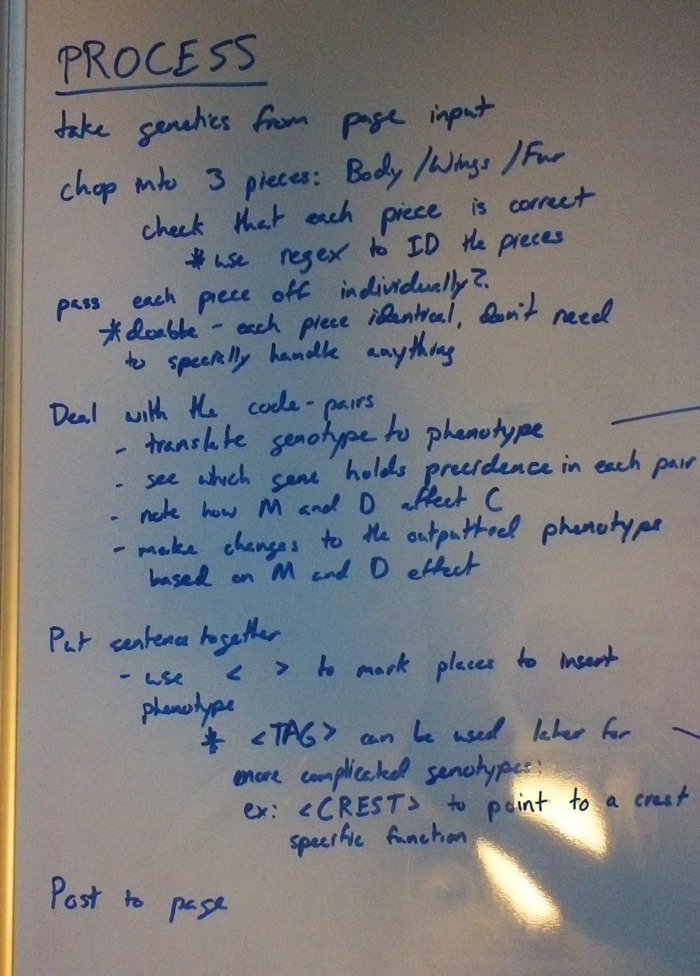 PROCESS
take genetics from page input
chop into 3 pieces: Body/Wings/Fur
check that each piece is correct
* use regex to ID the pieces
pass each piece off individually?
* doable - each piece identical, don't need
to specially handle anything
Deal with the code-pairs
- translate genotype to phenotype
- see which gene holds precidence in each pair
- note how M and D affect C
- make changes to the outputted phenotype
based on M and D effect
Put sentence together
- use < > to mark places to insert
phenotype
* <TAG> can be used later for
more complicated genotypes:
ex: <CREST> to point to a crest
specific function
Post to page